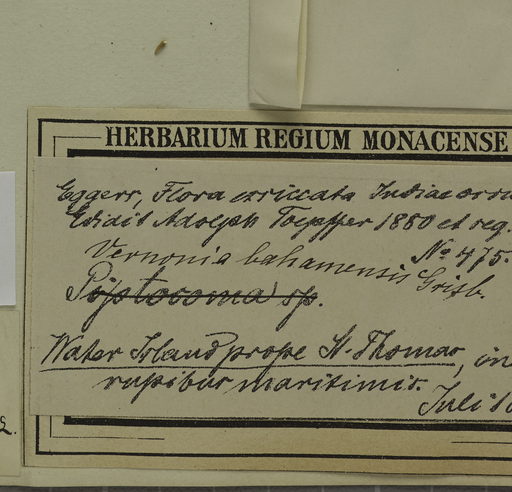 HERBARIUM REGIUM MONACENSE
Eggers, Flora exsiccata Indiae
Edidit Adolph Toepffer 1880 et seq.
No 475.
Vernonia bahamensis Grisb.
Piptocoma sp.
Water Island prope St. Thomas, in
rupibus maritimis.
Juli